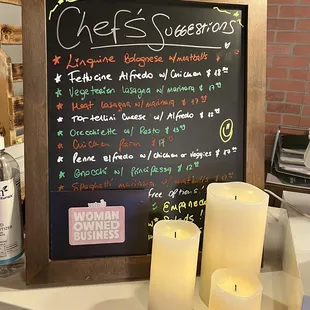 Chef's Suggestions
Linguine Bolognese w/meatballs $
Fettucine Alfredo w/ Chicken $ 18
Vegeterian lasagna w/ marinara $ 17
Meat lasagna w/ marinara $ 17
Tortellini Cheese w/ Alfredo $ 18
Orecchiette w/ Pesto $
Chicken parm $ 17
Penne alfredo w/ chicken or veggies $ 17
Gnocchi w/ principessa $
Spaghetti marinara w/ meatballs $
free of
WOMAN
OWNED
BUSINESS